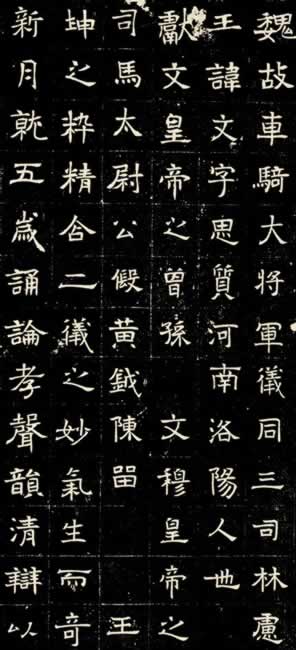 魏故車騎大將軍儀同三司林慮
王諱文字思質河南洛陽人也
獻文皇帝之曾孫　文穆皇帝之
司馬太尉公假黃鉞陳留　王
坤之粹精含二儀之妙氣生而奇
新月就五歲誦論孝聲韻清辯以